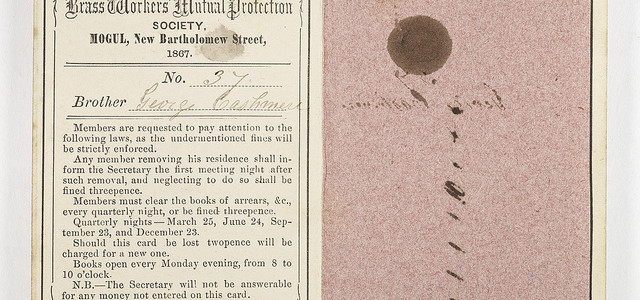 Brass Workers Mutual Protection
SOCIETY.
MOGUL, New Bartholomew Street,
1867.
No. 37
Brother George Cashmere
Members are requested to pay attention to the
following laws, as the undermentioned fines will
be strictly enforced.
Any member removing his residence shall in-
form the Secretary the first meeting night after
such removal, and neglecting to do so shall be
fined threepence.
Members must clear the books of arrears, &c.,
every quarterly night, or be fined threepence.
Quarterly nights — March 25, June 24, Sep-
tember 23, and December 23.
Should this card be lost twopence will be
charged for a new one.
Books open every Monday evening, from 8 to
10 o'clock.
N.B.—The Secretary will not be answerable
for any money not entered on this card.